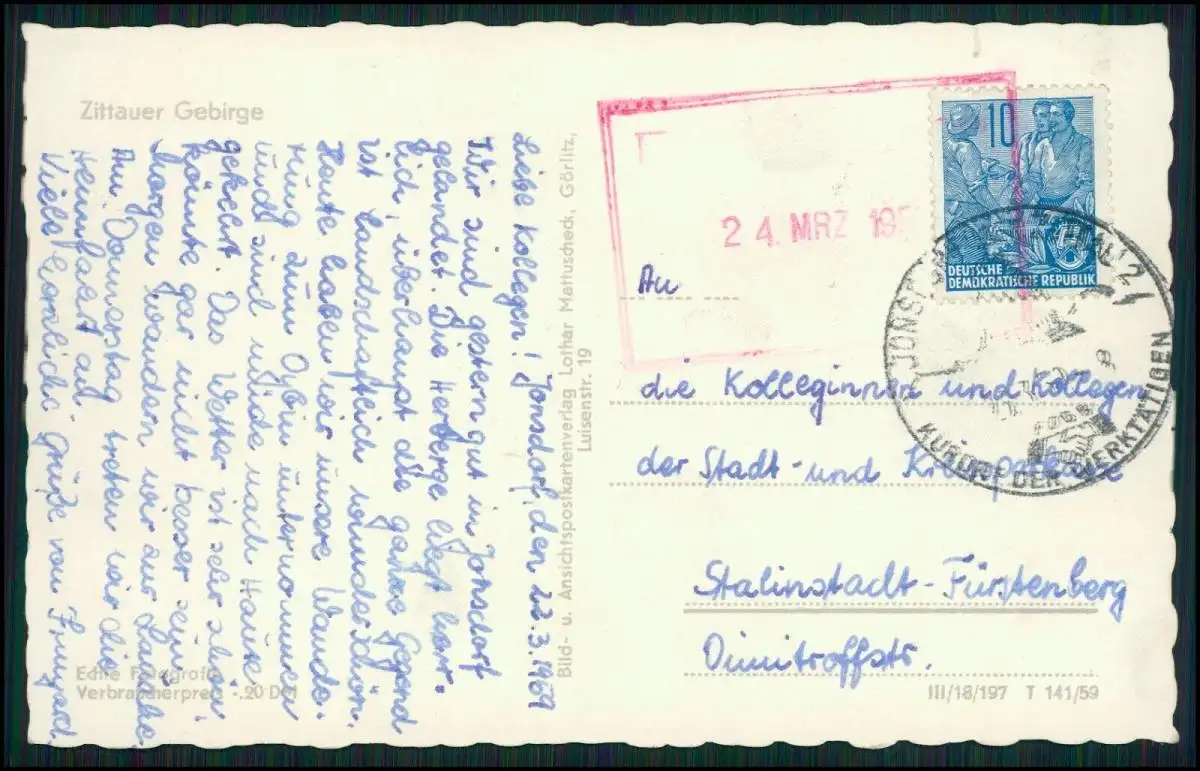 Zittauer Gebirge
Liebe Kollegen! Jonsdorf, den 22.3.1959
Wir sind gestern gut in Jonsdorf
gelandet. Die Herberge liegt herr-
lich, überhaupt die ganze Gegend
ist landschaftlich wunderschön.
Heute haben wir unsere Wande-
rung zum Oybin unternommen
und sind müde nach Hause
gekehrt. Das Wetter ist sehr schön,
könnte gar nicht besser sein.
Morgen wandern wir zur Lausche.
Am Donnerstag treten wir die
Heimfahrt an.
Viele herzliche Grüße von Irmgard
Echte Fotografie
Verbraucherpreis -.20 DM
Bild- u. Ansichtspostkartenverlag Lothar Mattuscheck, Görlitz,
Luisenstr. 19
24. MRZ 195
10
DEUTSCHE
DEMOKRATISCHE REPUBLIK
KURORT DER WERKTÄTIGEN
An
die Kolleginnen und Kollegen
der Stadt- und Kreissparkasse
Stalinstadt-Fürstenberg
Dimitroffstr.
III/18/197 T 141/59